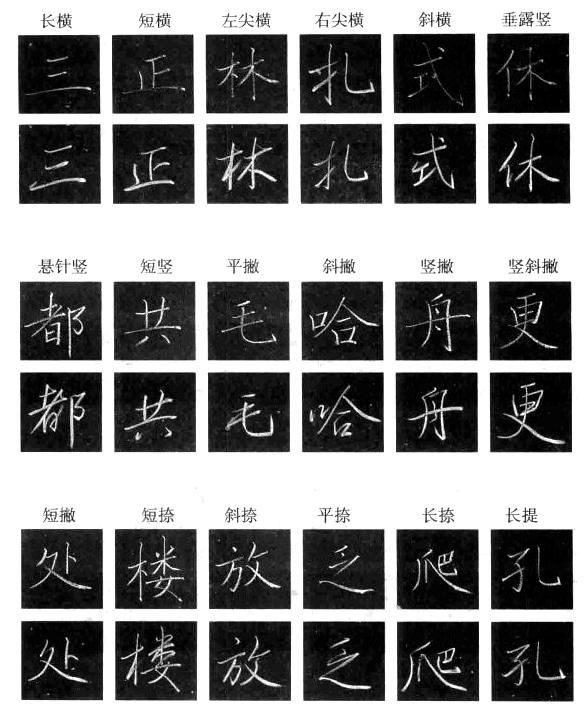 长横 短横 左尖横 右尖横 斜横 垂露竖
三 正 林 扎 式 休
三 正 林 扎 式 休
悬针竖 短竖 平撇 斜撇 竖撇 竖斜撇
都 共 毛 哈 舟 更
都 共 毛 哈 舟 更
短撇 短捺 斜捺 平捺 长捺 长提
处 楼 放 乏 爬 孔
处 楼 放 乏 爬 孔